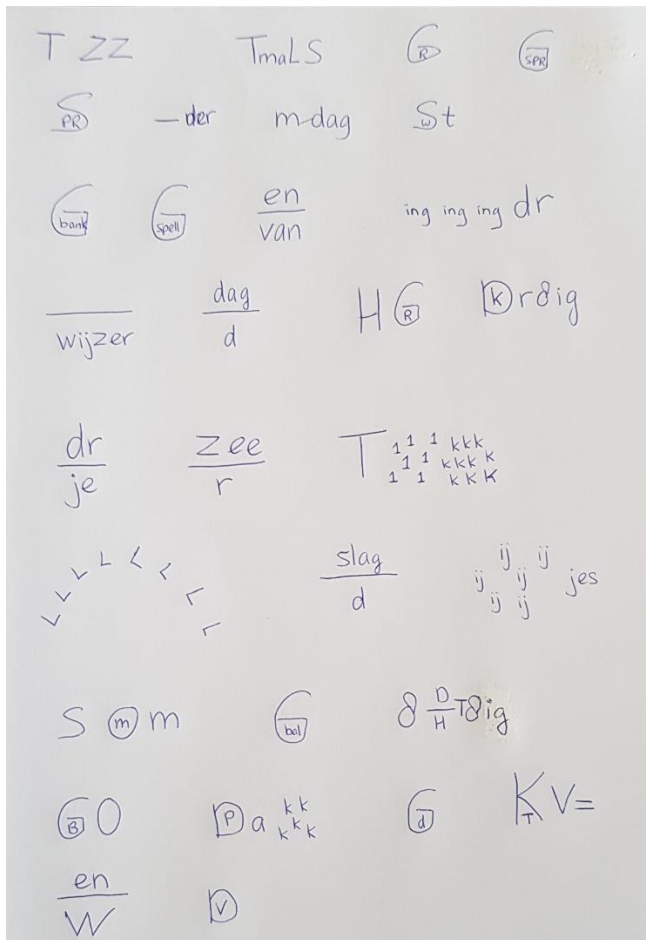 T ZZ TmaLS G R G SPR
S PR —der m-dag S W t
G bank G spell en van ing ing ing dr
wijzer dag d H G R D K r8ig
dr je zee r T 1 1 1 kkk 1 1 kkk k 1 1 k k K
L L L L L L L L slag d ij ij ij ij ij ij jes
S m m G bal 8 D H T8ig
G B O D P a k k k k k G d K T V=
en W D V